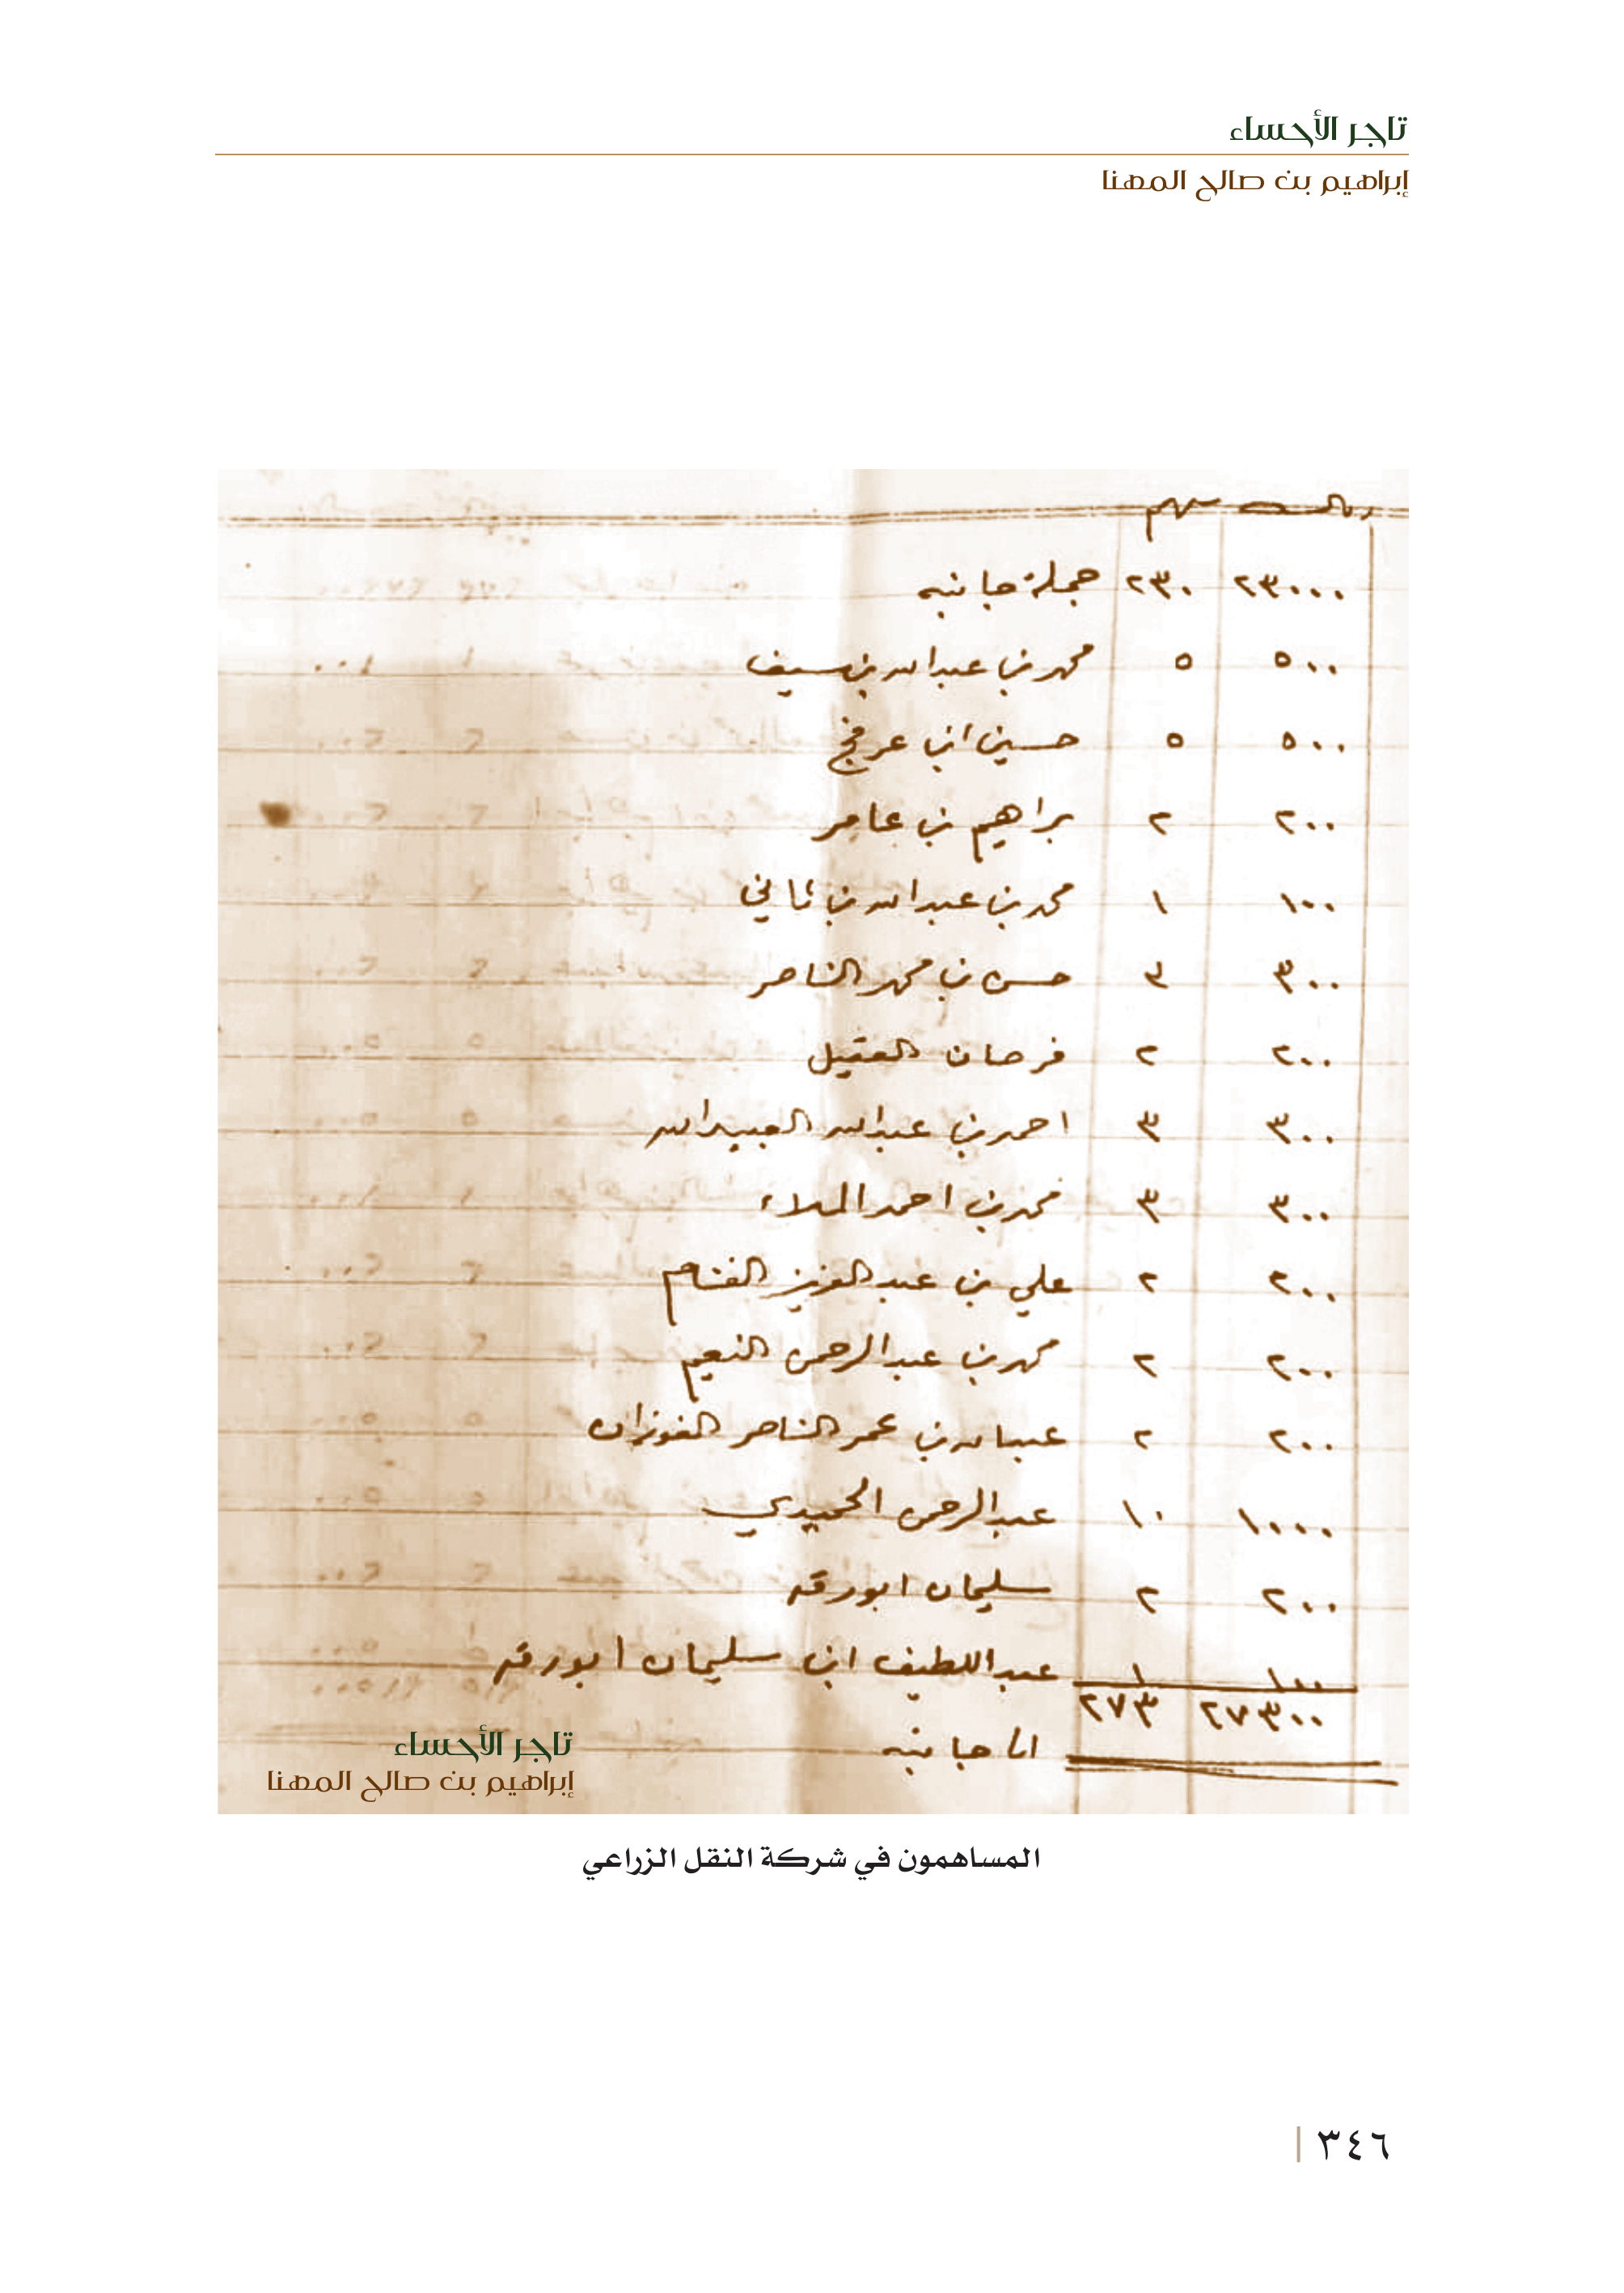 تاجر الأحساء
إبراهيم بن صالح المهنا
ريالت سهم
٢٣٠٠٠ ٢٣٠ جملة جانبه
٥٠٠ ٥ محمد بن عبدالله بن سيف
٥٠٠ ٥ حسين ابن عرفج
٢٠٠ ٢ براهيم بن عامر
١٠٠ ١ محمد بن عبدالله بن ثاني
٣٠٠ ٣ حسن بن محمد الناصر
٢٠٠ ٢ فرحان العقيل
٣٠٠ ٣ احمد بن عبدالله العبيدالله
٣٠٠ ٣ محمد بن احمد الملاء
٢٠٠ ٢ علي بن عبدالعزيز الغنام
٢٠٠ ٢ محمد بن عبدالرحمن النعيم
٢٠٠ ٢ عبدالله بن عمر الناصر الفوزان
١٠٠٠ ١٠ عبدالرحمن الحميدي
٢٠٠ ٢ سليمان ابورقه
١٠٠ ١ عبداللطيف ابن سليمان ابورقه
٢٧٣٠٠ ٢٧٣
جانبه
تاجر الأحساء
إبراهيم بن صالح المهنا
المساهمون في شركة النقل الزراعي
٣٤٦